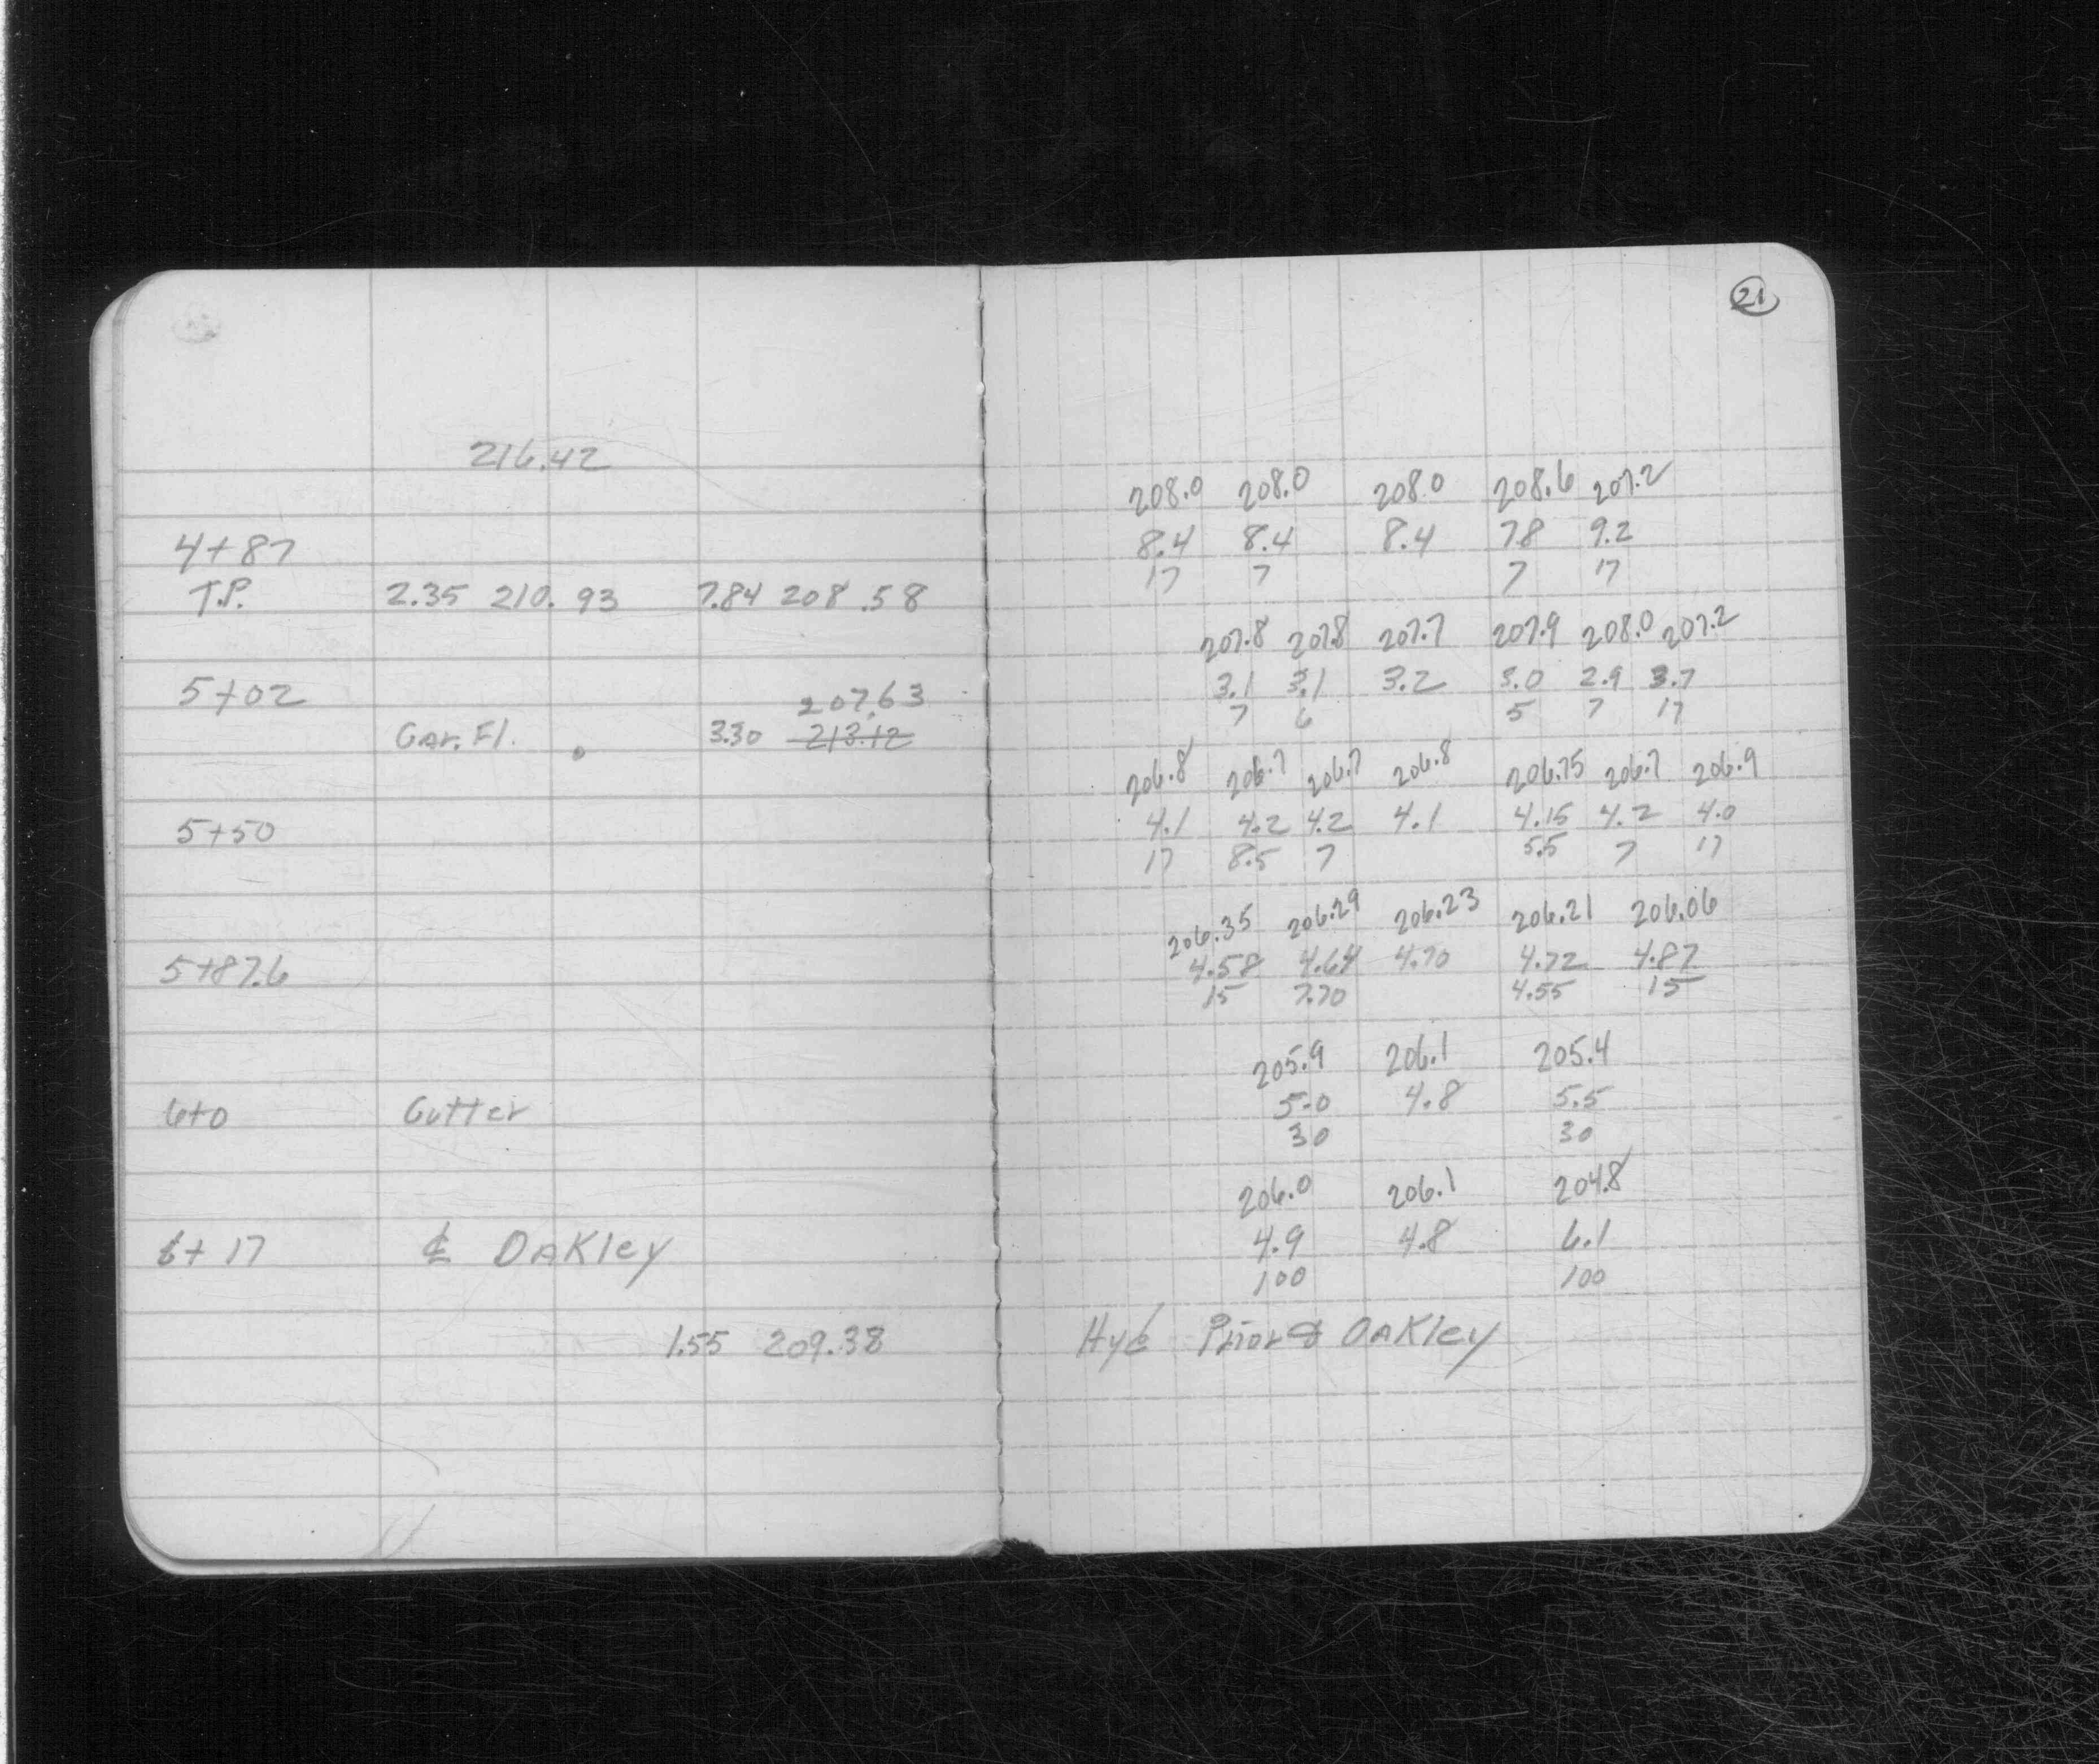 21
216.42
208.0 208.0 208.0 208.6 207.2
4+87 8.4 8.4 8.4 7.8 9.2
17 7 7 17
T.P. 2.35 210.93 7.84 208.58
207.8 207.8 207.7 207.9 208.0 207.2
5+02 3.1 3.1 3.2 3.0 2.9 3.7
207.63 7 6 5 7 17
Gar. Fl. 3.30 213.12
206.8 206.7 206.7 206.8 206.75 206.7 206.9
5+50 4.1 4.2 4.2 4.1 4.15 4.2 4.0
17 8.5 7 5.5 7 17
206.35 206.29 206.23 206.21 206.06
5+87.6 4.58 4.64 4.70 4.72 4.87
15 7.70 4.55 15
205.9 206.1 205.4
6+0 Gutter 5.0 4.8 5.5
30 30
206.0 206.1 204.8
6+17 ℄ OAKley 4.9 4.8 6.1
100 100
1.55 209.38 Hyd Prior & OAKley